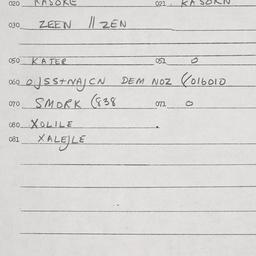 020 KASOKE 021 KASOKN
030 ZEEN // ZEN
050 KATER 051 O
060 OJSS+NAJCN DEM NOZ (016010
070 SMORK (838 071 O
080 XOLILE
081 XALEJLE